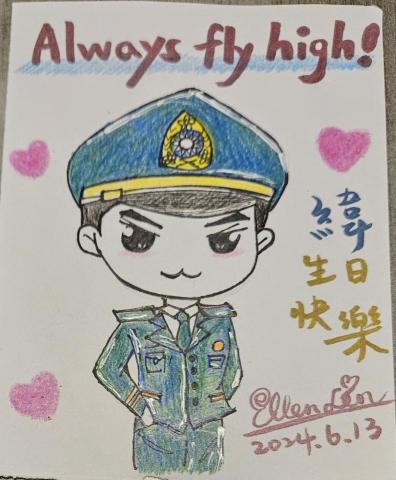 Always fly high!
緯
生日
快樂
@Ellen Lin
2024.6.13